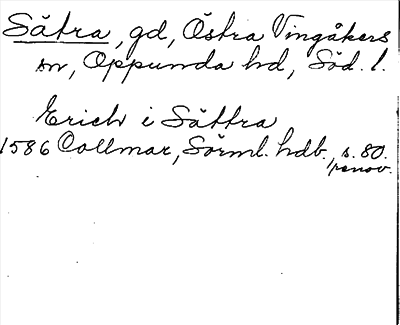 Sätra, gd, Östra Vingåkers
sn, Oppunda hd, Söd. l.
Erich i Sättra
1586 Collmar, Sörml. hdb., s. 80.
/penov.